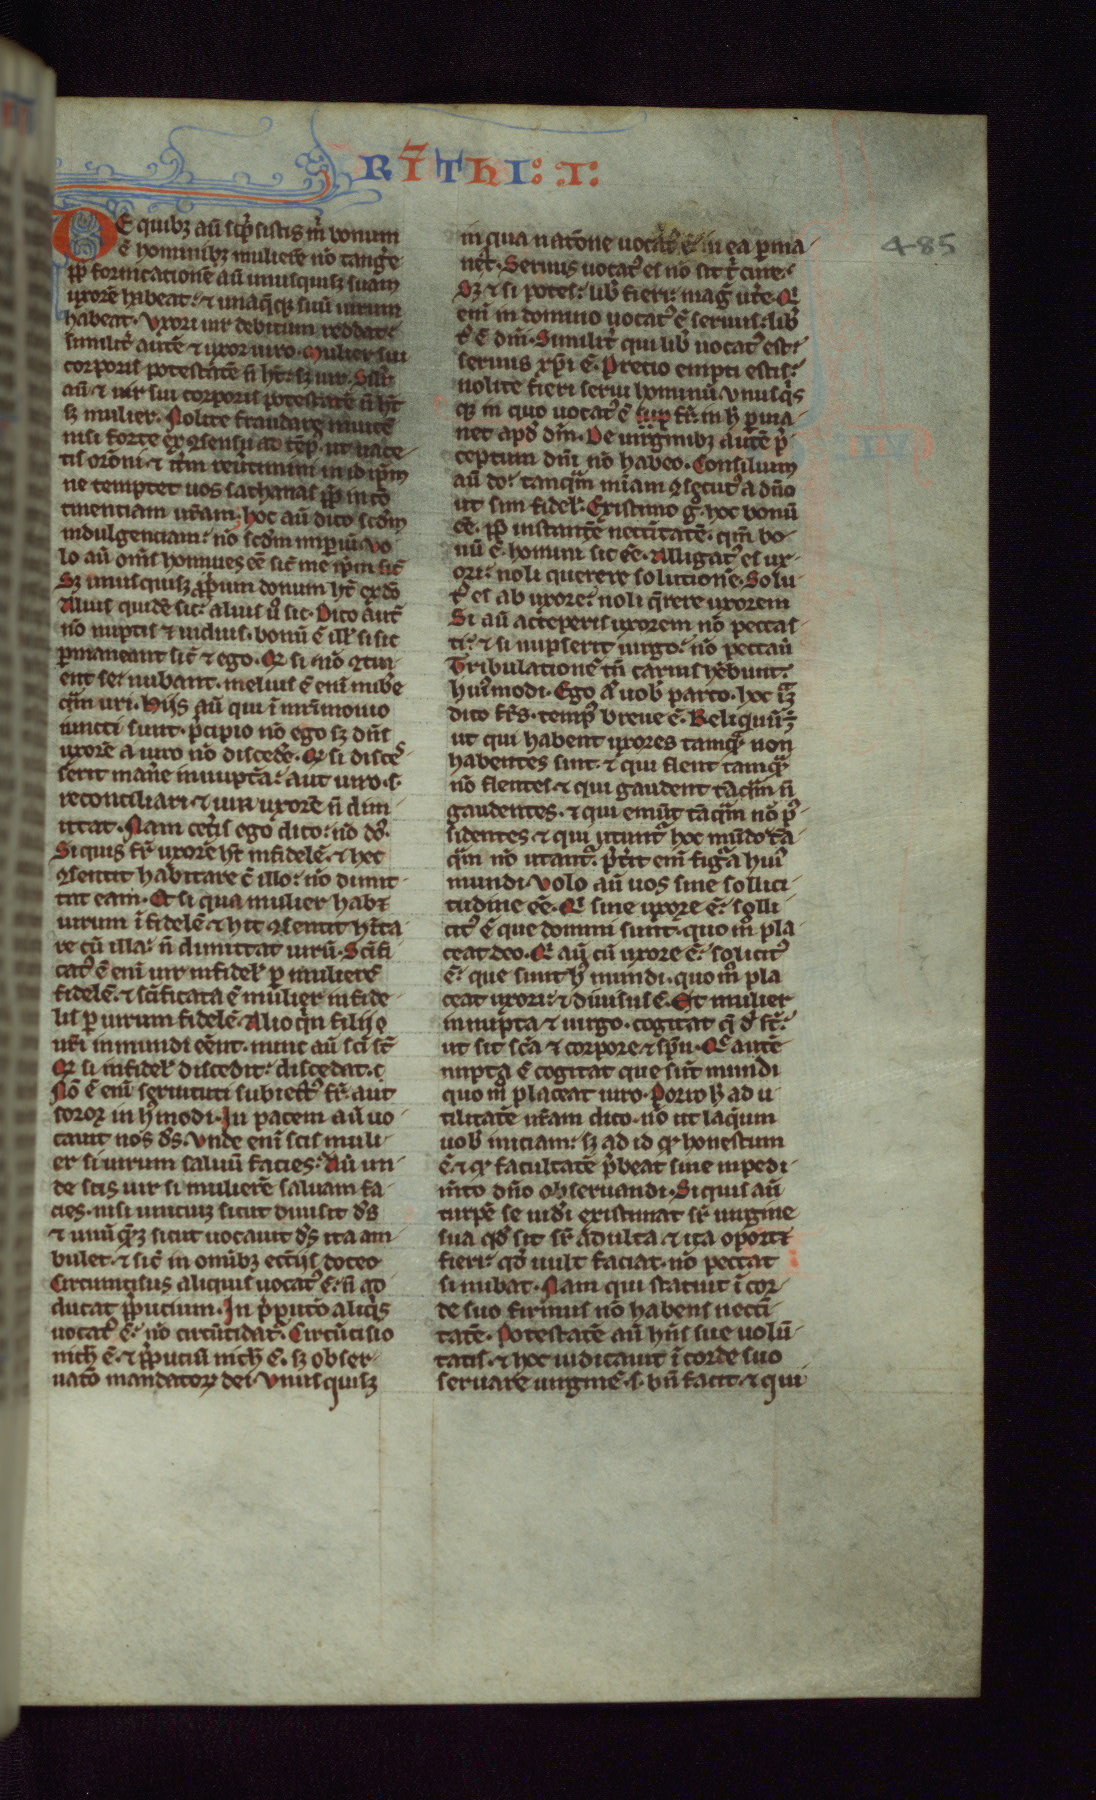 RĪTHI: I:
485
DE quibȝ aū sc̄pſiſtis m̄ bonum
ē hominibȝ mulierē nō tang̾e
ꝓp̄ fornicationē aū unuſquiſȝ ſuam
uxorē habeat: ⁊ unaq̄qȝ ſuū uirum
habeat. Vxori uir debitum reddat:
ſimilit̾ autē ⁊ uxor uiro. Mulier ſui
corporiſ poteſtatē ñ h̄t: ſȝ uir. Sil̾r
aū ⁊ uir ſui corporiſ poteſtatē ñ h̄t
ſȝ mulier. Nolite fraudare inuicē
niſi forte ex ꝯſenſu ad tēp̾ ut uace-
tiſ or̄oni ⁊ it̾m reu̾timini in id ip̄m
ne temptet uoſ ſathanaſ ꝓp̄ incō
tinenciam ur̄am. hoc aū dico ſcd̄m
indulgenciam: nō ſcd̄m imꝑiū. Vo
lo aū om̄ſ homineſ eē ſic̄ me ip̄m ſic̄
Sȝ unuſquiſȝ ꝓp̄um donum h̄t ex dō
Aliuſ quidē ſic: aliuſ u̾ ſic. Dico aut̄
nō nuptiſ ⁊ uiduiſ. bonū ē ill̾ ſi ſic
ꝑmaneant ſic̄ ⁊ ego. Qd̾ ſi nō ꝯtin
ent ſe: nubant. meliuſ ē eni nub̾e
q̄m uri. hiis aū qui ī mr̄imonio
iuncti ſunt. p̾cipio nō ego ſȝ dn̄ſ
uxorē a uiro nō diſcedē. Qd̾ ſi diſceſ̾
ſerit man̾e innuptā: aut uiro .ſ.
reconciliari. ⁊ uir uxorē ñ dim
ittat. Nam cet̾iſ ego dico: nō dn̄ſ.
Siquiſ fr̄ uxorē h̄t infidelē. ⁊ hec
ꝯſentit habitare c̄ illo: nō dimit
tat eam. Et ſi qua mulier habȝ
uirum īfidelē ⁊ hic ꝯſentit h̄ita
re cū illa: ñ dimittat uirū. Sc̄ifi
cat̾ ē eni uir infidel̾ ꝑ mulierē
fidelē. ⁊ ſc̄ificata ē mulier infide
liſ ꝑ uirum fidelē. Alioq̄n filij
ur̄i inmundi eēnt. nunc aū ſc̄i ſt̄
Qd̾ ſi infidel̾ diſcedit: diſcedat.
Nō ē eni ſeruituti ſubiect̾ fr̄. aut
ſoror in h̾modi. In pacem aū uo
cauit nos d̄s. Vnde eni ſciſ muli
er ſi uirum ſaluū facieſ: Aū un
de ſciſ uir ſi mulierē ſaluam fa
cieſ. niſi unicuiȝ ſicut diuiſit d̄s
⁊ unū q̄mȝ ſicut uocauit d̄s ita am
bulet. ⁊ ſic̄ in omībȝ eccl̄ijſ doceo
Circumciſuſ aliquiſ uocat̾ ē: ñ ad
ducat ꝓp̾ucium. In p̾puto aliq̾s
uocat̾ ē: nō circūcidat̾. Circūciſio
nich̾ ē. ⁊ ꝓp̾uciū nich̾ ē. ſȝ obſer
uatō mandatoꝝ dei. Vnuſquiſȝ
in qua uatōne uocat̾ ē in ea ꝑma
net. Seruuſ uocat̾ eſ nō ſit t̾ cure.
Sȝ ⁊ ſi poteſ: lib̾ fieri: mag̾ ut̾e. Q̾
eni in domino uocat̾ ē ſeruuſ: lib̾
t̾ ē dn̄i. Similit̾ qui lib̾ uocat̾ eſt:
ſeruuſ xp̄i ē. Precio empti eſtiſ:
nolite fieri ſerui hominū. Vnuſq̾s
qȝ in quo uocat̾ ē fr̄. in h̾ ꝑma
net apd̾ dm̄. De uirginibȝ autē p̾
ceptum dn̄i nō habeo. Conſilium
aū do: tanq̄m mīam ꝯſecut̾ a dn̄o
ut ſim fidel̾. Exiſtimo g̾ hoc bonū
eē. ꝓp̄ inſtantē neccītatē. qm̄ bo
nū ē homini ſic eē. Alligat̾ eſ ux
ori: noli querere ſolutionē. Solu
t̾ eſ ab uxore: noli q̄rere uxorem
Si aū acceperiſ uxorem nō peccaſ
ti: ⁊ ſi nupſerit uirgo: nō peccau̾
Tribulationē tn̄ carniſ h̄ebunt.
hui̾modi. Ego aū uob̾ parco. hoc itȝ
dico fr̄s. temp̾ breue ē. Reliquū ē
ut qui habent uxores tamq̄ non
habentes ſint. ⁊ qui flent tamq̄
nō flentes. ⁊ qui gaudent tāq̄m ñ
gaudentes. ⁊ qui emūt tāq̄m nō p̾
ſidentes. ⁊ qui utunt̾ hoc mūdo tā
q̄m nō utant̾. p̾t̾it eni fig̾a hui̾
mundi. Volo aū uoſ ſine ſollici
tudine eē. Qi̾ ſine uxore ē: ſolli
cit̾ ē que domini ſunt. quo m̄ pla
ceat deo. Qi̾ aū cū uxore ē: ſolicit̾
ē: que ſunt h̾ mundi. quo m̄ pla
ceat uxori: ⁊ diuiſuſ ē. Et mulier
innupta ⁊ uirgo. cogitat q̄ dn̄i ſt̄:
ut ſit ſc̄a ⁊ corpore ⁊ ſp̄u. Q̄ autē
nupta ē cogitat que ſūt mundi
quo m̄ placeat uiro. Porro h̾ ad u
tilitatē ur̄am dico. nō ut laq̾um
uob̾ iniciam: ſȝ ad id qd̾ honeſtum
ē. ⁊ qd̾ facultatē p̾beat ſine inpedi
m̄to dn̄o obſeruandi. Si quiſ aū
turpē ſe uid̾i exiſtimat ſr̄ uirgine
ſua qd̾ ſit ſr̄ adulta. ⁊ ita oportȝ
fieri: qd̾ uult faciat. nō peccat
ſi nubat. Nam qui ſtatuit ī cor
de ſuo firmuſ nō habenſ necci
tatē. Poteſtatē aū hn̄s ſue uolū
tatiſ. ⁊ hoc iudicauit ī corde ſuo
ſeruare uirginē .ſ. bn̄ facit. ⁊ qui